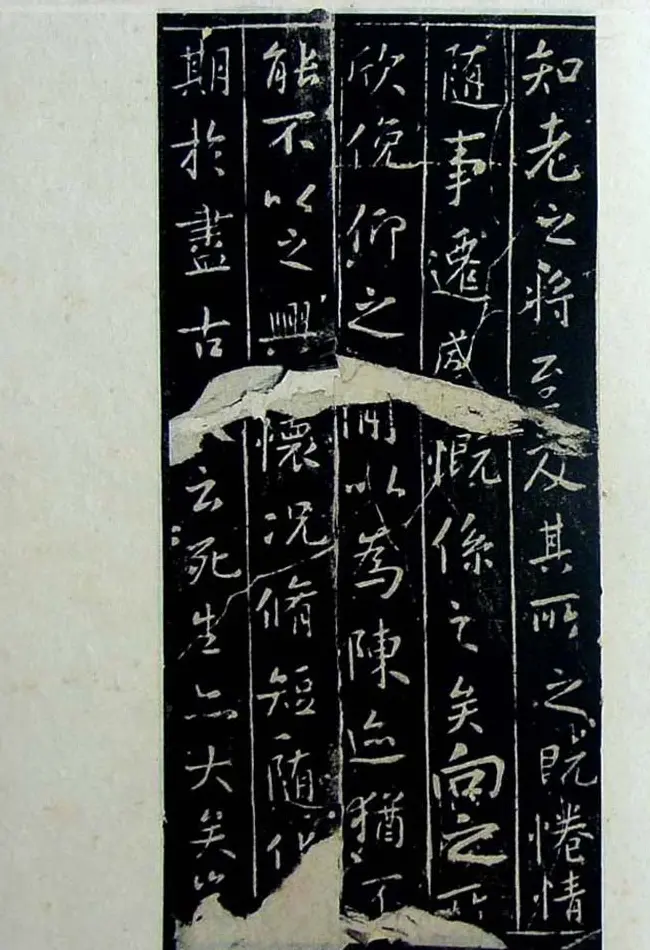 知老之将至及其所之既惓情
随事遷感慨係之矣向之所
欣俛仰之間以為陳迹猶不
能不以之興懷况脩短随化
期於盡古云死生亦大矣